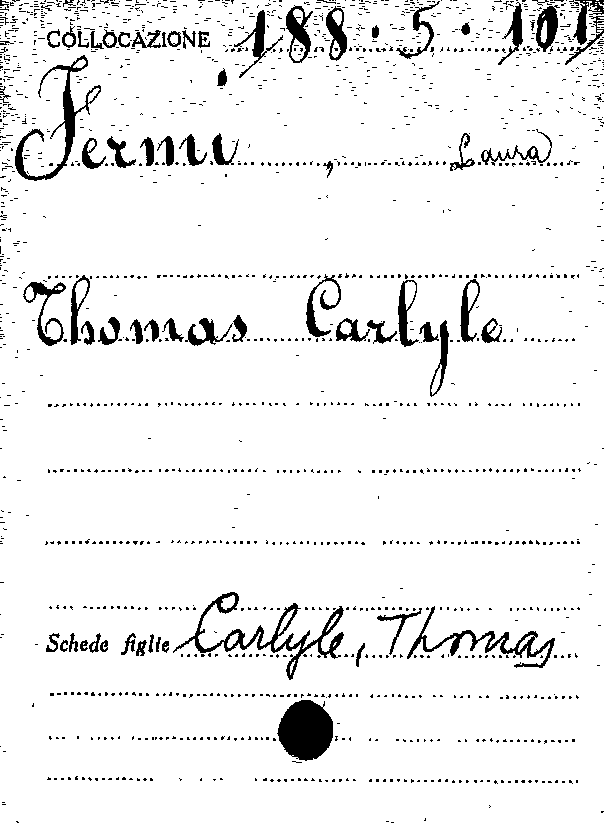 COLLOCAZIONE 188.5.101
Fermi, Laura
Thomas Carlyle
Schede figlie Carlyle, Thomas